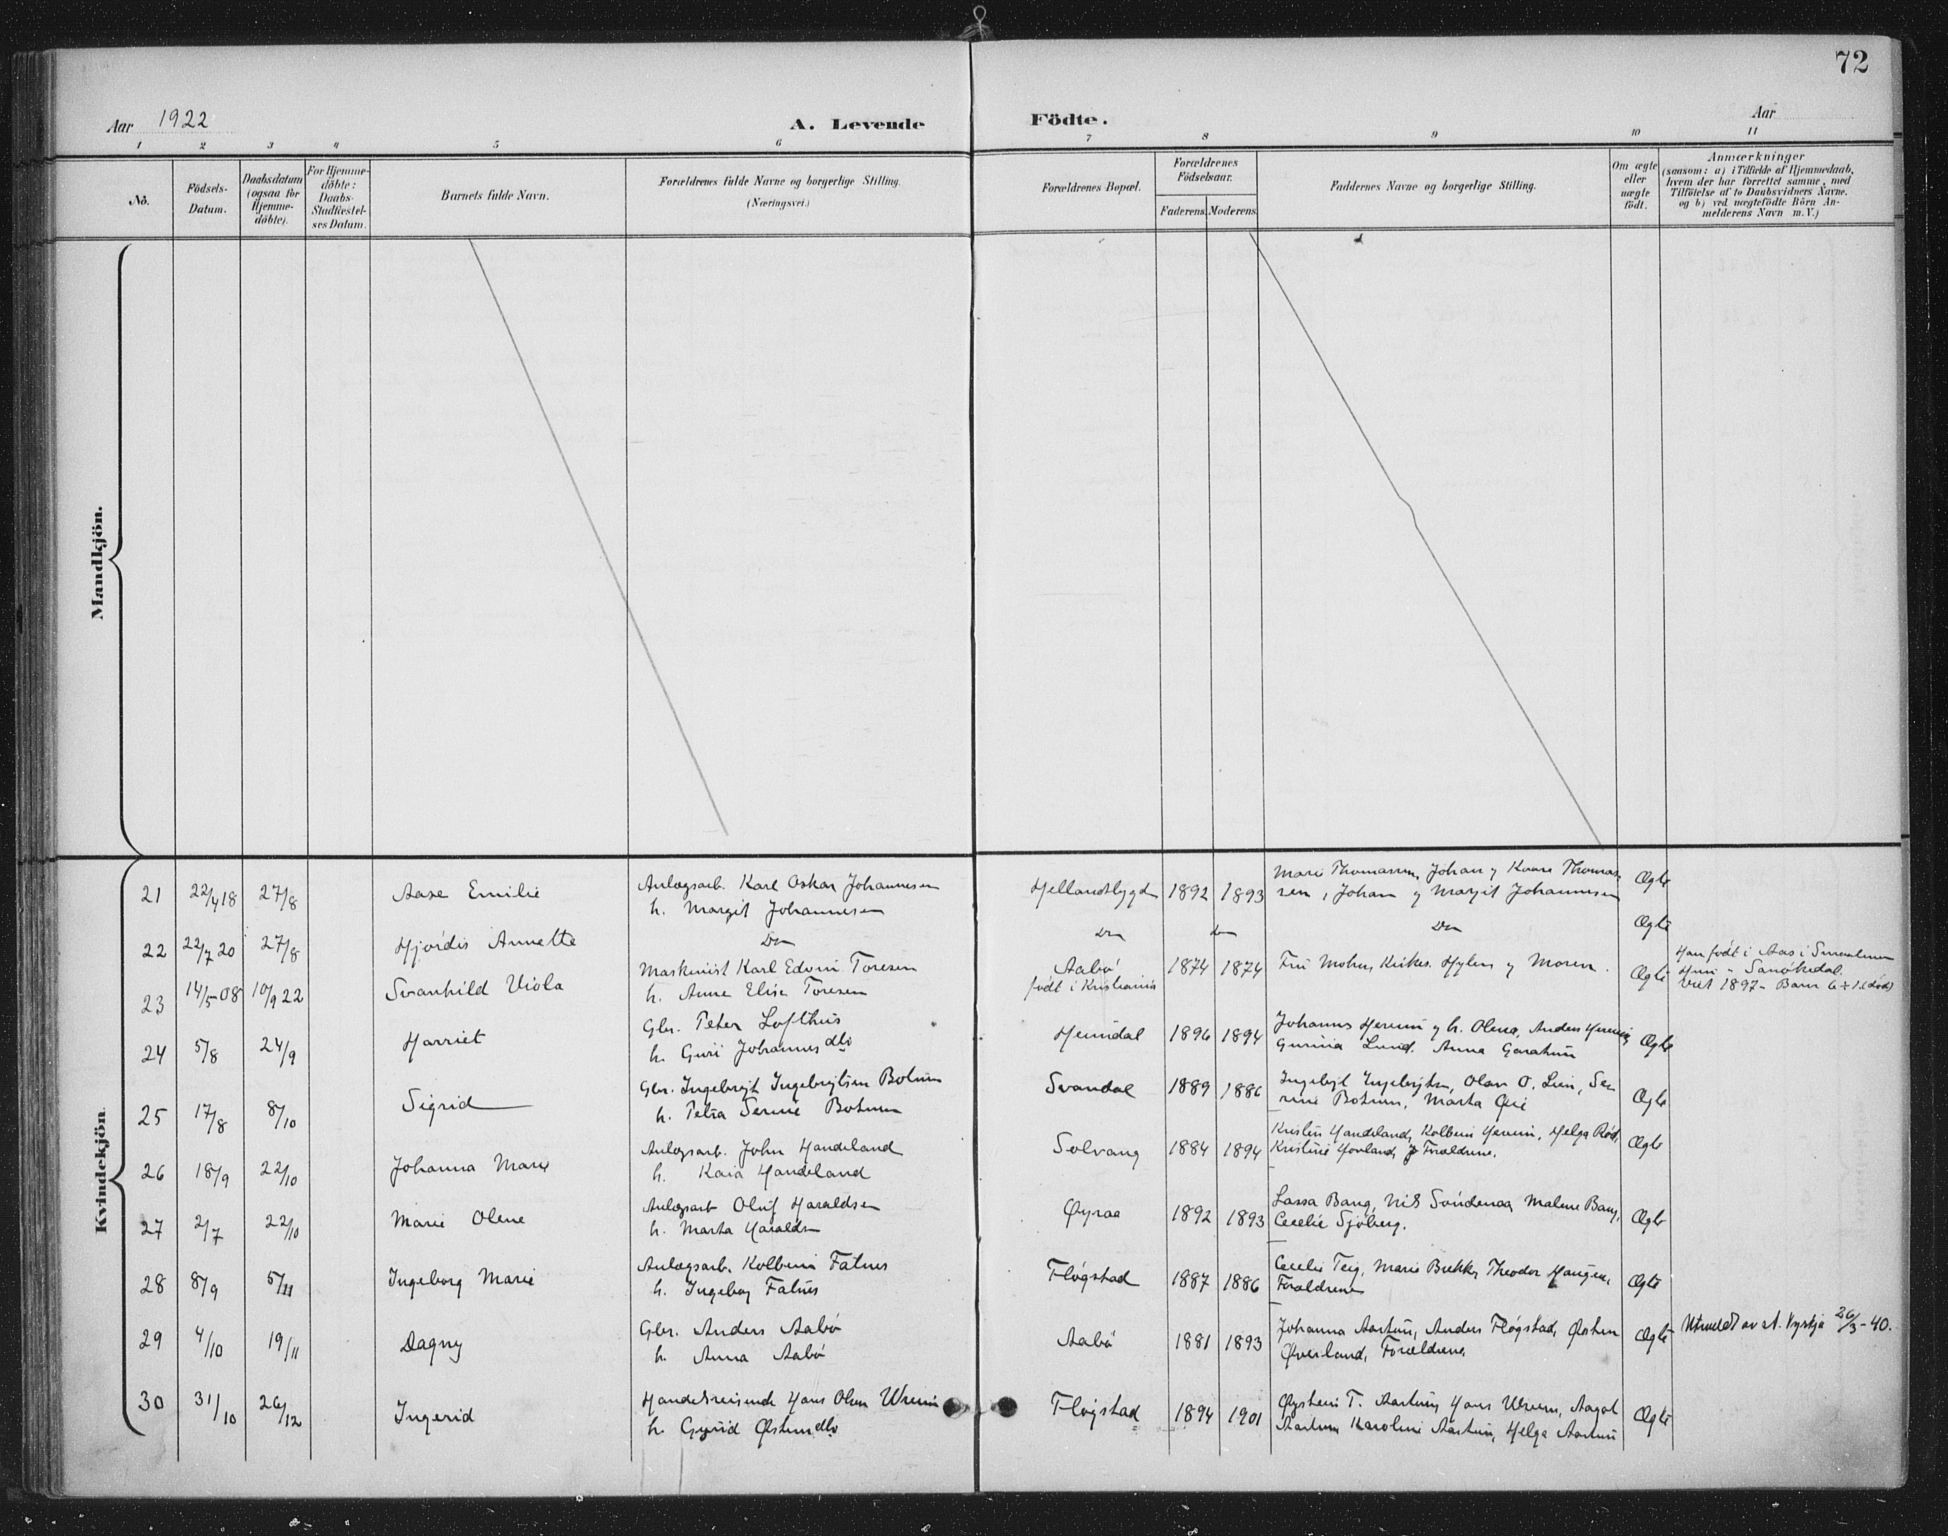 72
Aar 1922
A. Levende
Födte.
Aar
1 2 3 4 5 6 7 8 9 10 11
No.
Födsels-
Datum.
Daabsdatum
(ogsaa for
Hjemme-
döbte).
For Hjemme-
döbte:
Daabs-
Stadfæstel-
ses Datum.
Barnets fulde Navn.
Forældrenes fulde Navne og borgerlige Stilling.
(Næringsvei.)
Forældrenes Bopæl.
Forældrenes
Födselsaar.
Faderens.
Moderens.
Faddernes Navne og borgerlige Stilling.
Om ægte
eller
uægte
födt.
Anmærkninger
(saasom: a) i Tilfælde af Hjemmedaab,
hvem der har forrettet samme, med
Tilföielse af to Daabsvidners Navne,
og b) ved uægtefödte Börn An-
melderens Navn m. V.)
Mandkjön.
Kvindekjön.
21 22/4 18 27/8 Aase Emilie Anlægsarb. Karl Oskar Johannesen
h. Margit Johannesen
Hellandsbygd 1892 1893 Marie Thomassen, Johan og Kaare Thomas-
sen, Johan og Margit Johannesen Ægte
22 22/7 20 27/8 Hjördis Annette Do Do Do Do Ægte
23 14/5-08 10/9 22 Svanhild Viola Maskinist Karl Edvin Toresen
h. Anne Elise Toresen
Aabö
födt i Kristiania
1874 1874 Fru Mohus, Hylen og Moren. Ægte
Han födt i Aas i
Hun " Sanökedal.
viet 1897- Barn 6 + 1 (död)
24 5/8 24/9 Harriet Gbr. Peter Lofthus
h. Guri Johannesdtr
Heimdal 1896 1894 Johannes Hereim og h. Olena, Anders Hereim,
Gurina Lund. Anna Ægte
25 17/8 8/10 Sigrid Gbr. Ingebrigt Ingebrigtsen Botnen
h. Petra Serine Botnen
Svandal 1889 1886 Ingebrigt Ingebrigtsen, Olav O. Lien, Se-
rine Botnen, Marta Ægte
26 18/9 22/10 Johanna Marie Anlægsarb. John Handeland
h. Kaia Handeland
Solvang 1884 1894 Kristin Handeland, Kolbein Hereim, Helga Röd,
Kristine Hovland, Forældrene. Ægte
27 2/7 22/10 Marie Olene Anlægsarb Oluf Haraldsen
h. Marta Haraldsen
Øyraa 1892 1893 Lassa Bang, Nils Söndenaa, Malene Bang,
Cecelie Sjöberg. Ægte
28 8/9 5/11 Ingeborg Marie Anlægsarb. Kolbein Fatnes
h. Ingeborg Fatnes
Flögstad 1887 1886 Cecelie Teig, Marie Brekke, Theodor Haugen,
Forældrene Ægte
29 4/10 19/11 Dagny Gbr. Anders Aabö
h. Anna Aabö
Aabö 1881 1893 Johanna Aartun, Anders Flögstad, Østen
Øverland, Forældrene Ægte
Utmeldt av st. kyrkja 26/3-40.
30 31/10 26/12 Ingerid Handelsreisende Hans Olsen Wreim
h. Gyrid Østensdtr
Flögstad 1894 1901 Øystein T. Aartun, Hans Wreim, Aagot
Aartun Karoline Aartun, Helga Aartun Ægte